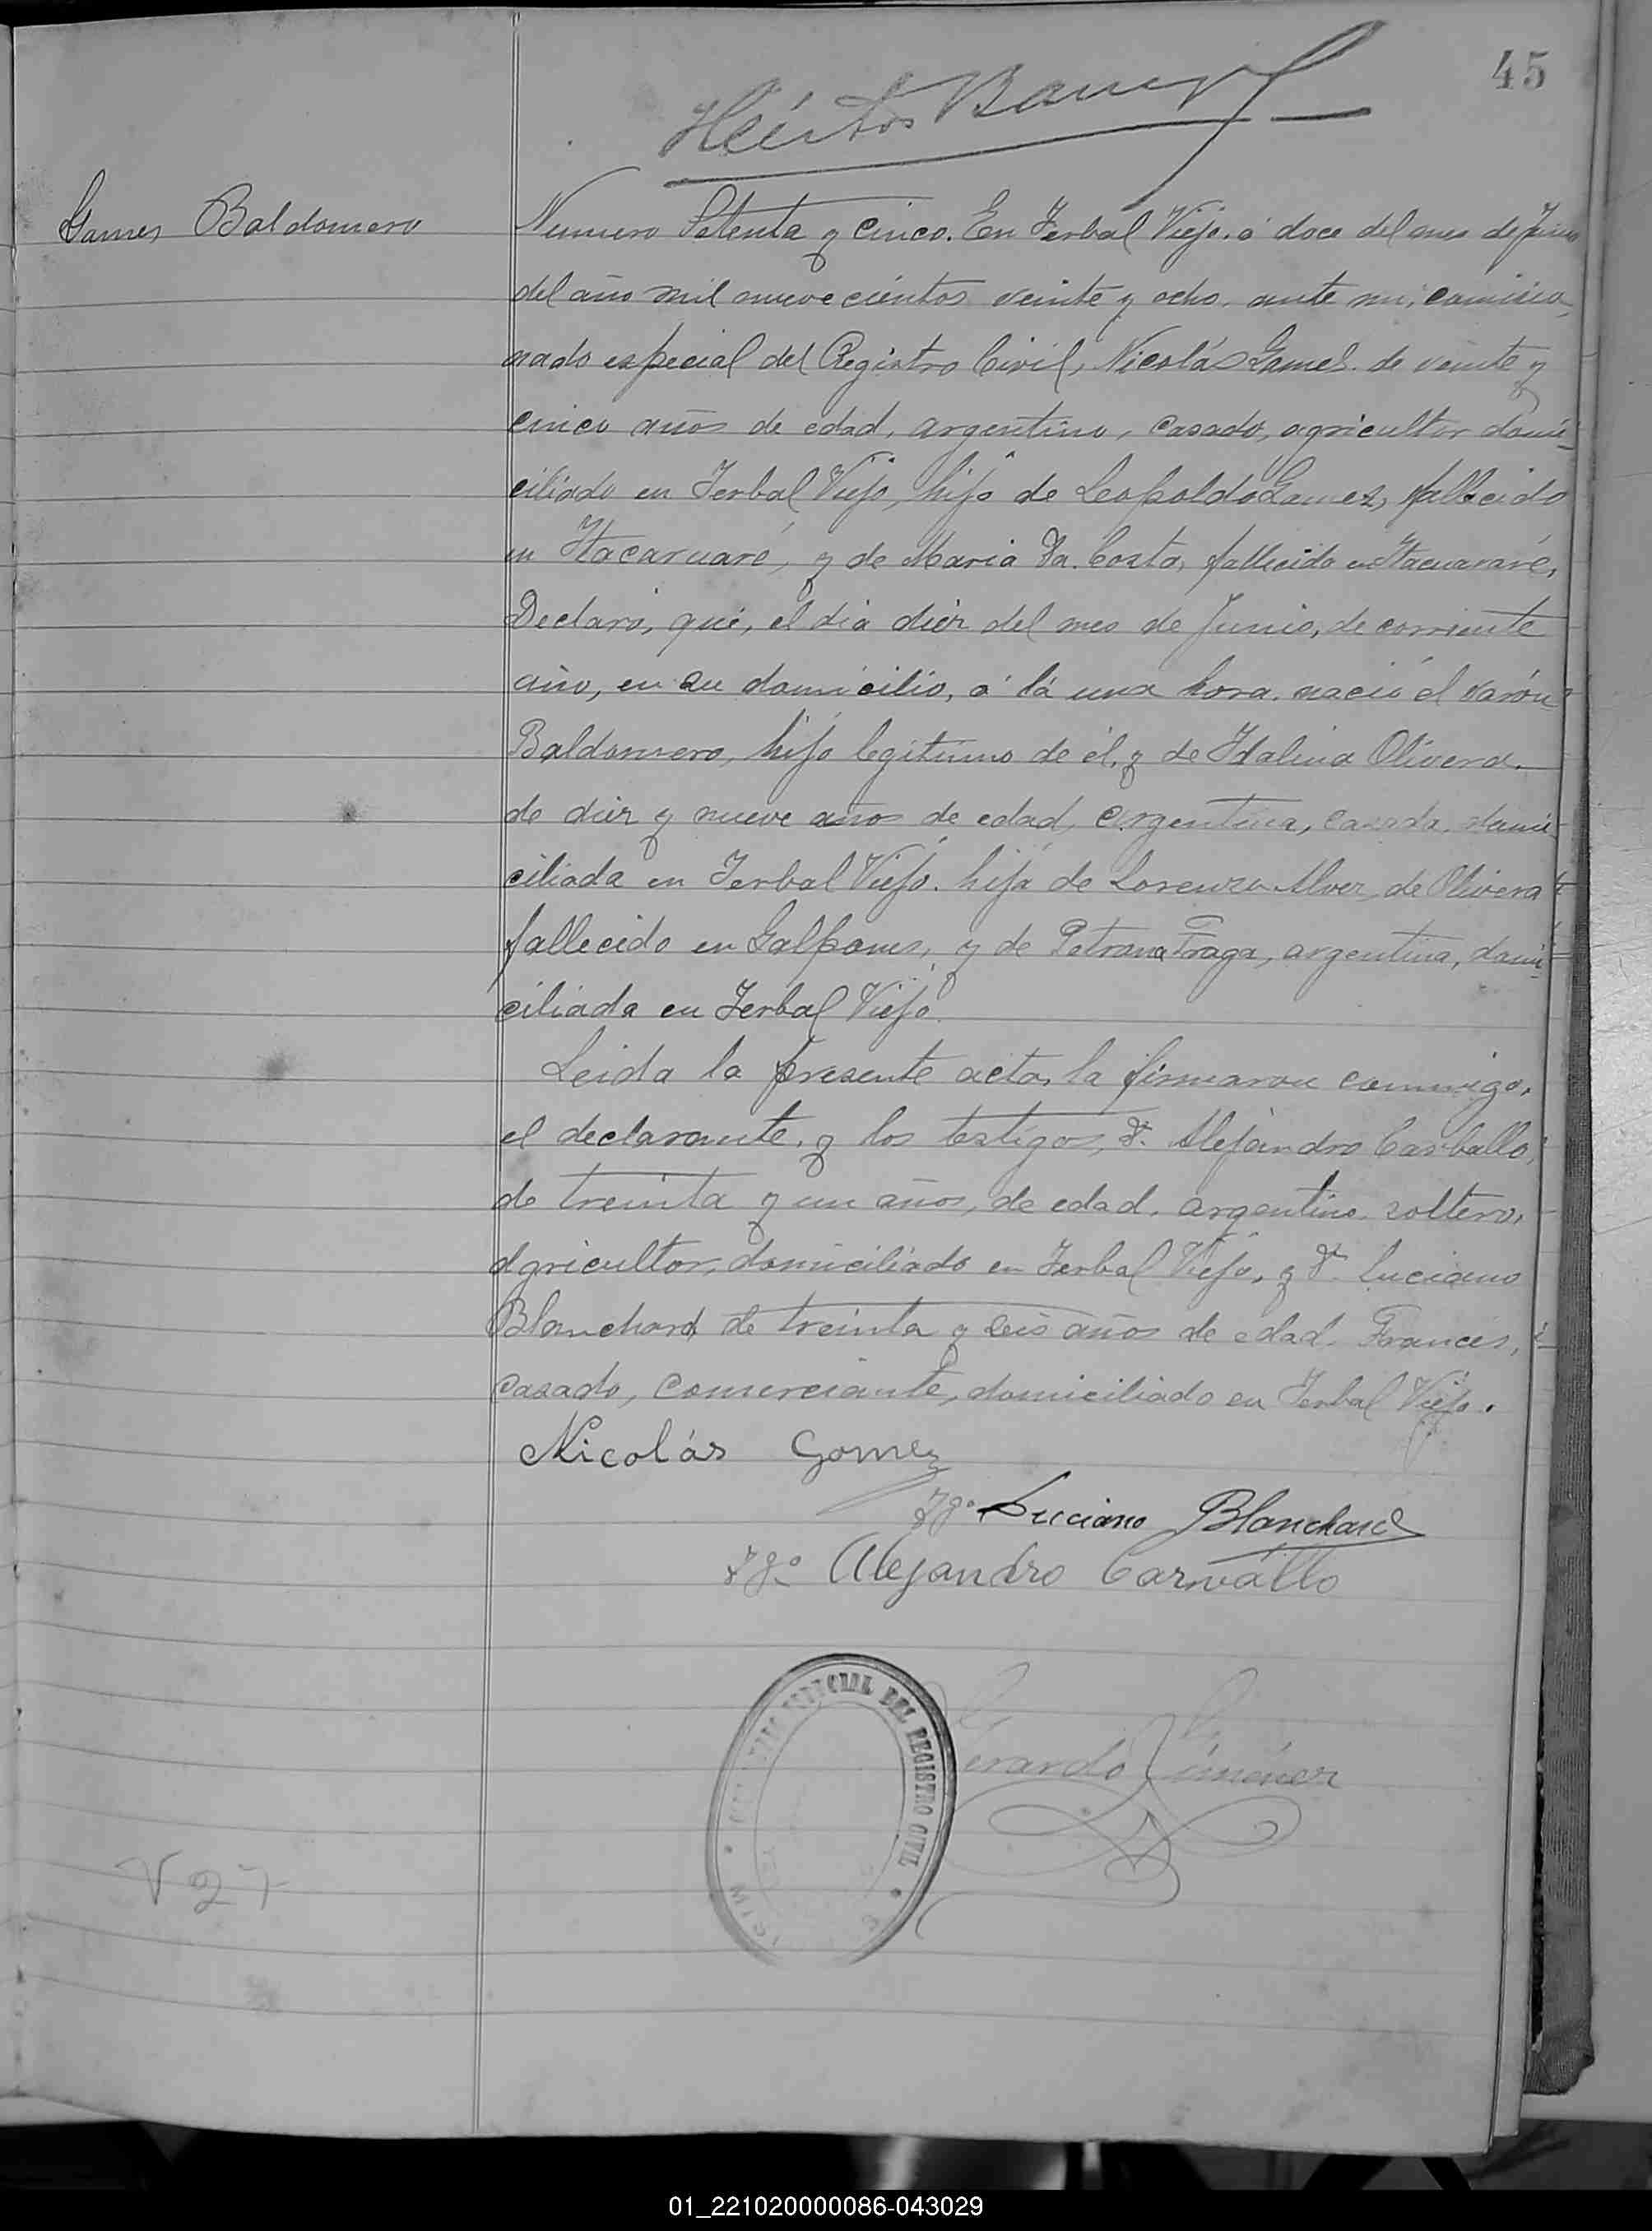 45
Games Baldomero
Numero Setenta y cinco. En Yerbal Viejo, á doce del mes de Junio
del año mil nuevecientos veinte y ocho, ante mi, comisio-
nado especial del Registro Civil, Nicolás Games de veinte y
cinco años de edad, argentino, casado, agricultor domi-
ciliado en Yerbal Viejo, hijo de Leopoldo Gamez, fallecido
en Itacaruaré, y de Maria Da. Costa, fallecido en Itacuararé,
Declaró, qué, el dia diez del mes de Junio, de corriente
año, en su domicilio, á lá una hora, nació el varón
Baldomero, hijo legitimo de él, y de Idalina Olivera.
de diez y nueve años de edad, argentina, casada, domi-
ciliada en Yerbal Viejo, hija de Lorenzo Alvez, de Olivera
fallecido en Galpones, y de Petrona Fraga, argentina, domi-
ciliada en Yerbal Viejo.
Leida la presente acta, la firmaron conmigo,
el declarante, y los testigos, D. Alejandro Carballo,
de treinta y un años, de edad, argentino, soltero,
agricultor, domiciliado en Yerbal Viejo, y D. Luciano
Blanchard de treinta y seis años de edad, Frances,
casado, comerciante, domiciliado en Yerbal Viejo.
Nicolás Gomez
Tgo. Luciano Blanchard
Tgo. Alejandro Carvallo
ESPECIAL DEL REGISTRO CIVIL
Gerardo Giménez
V 27
01_221020000086-043029